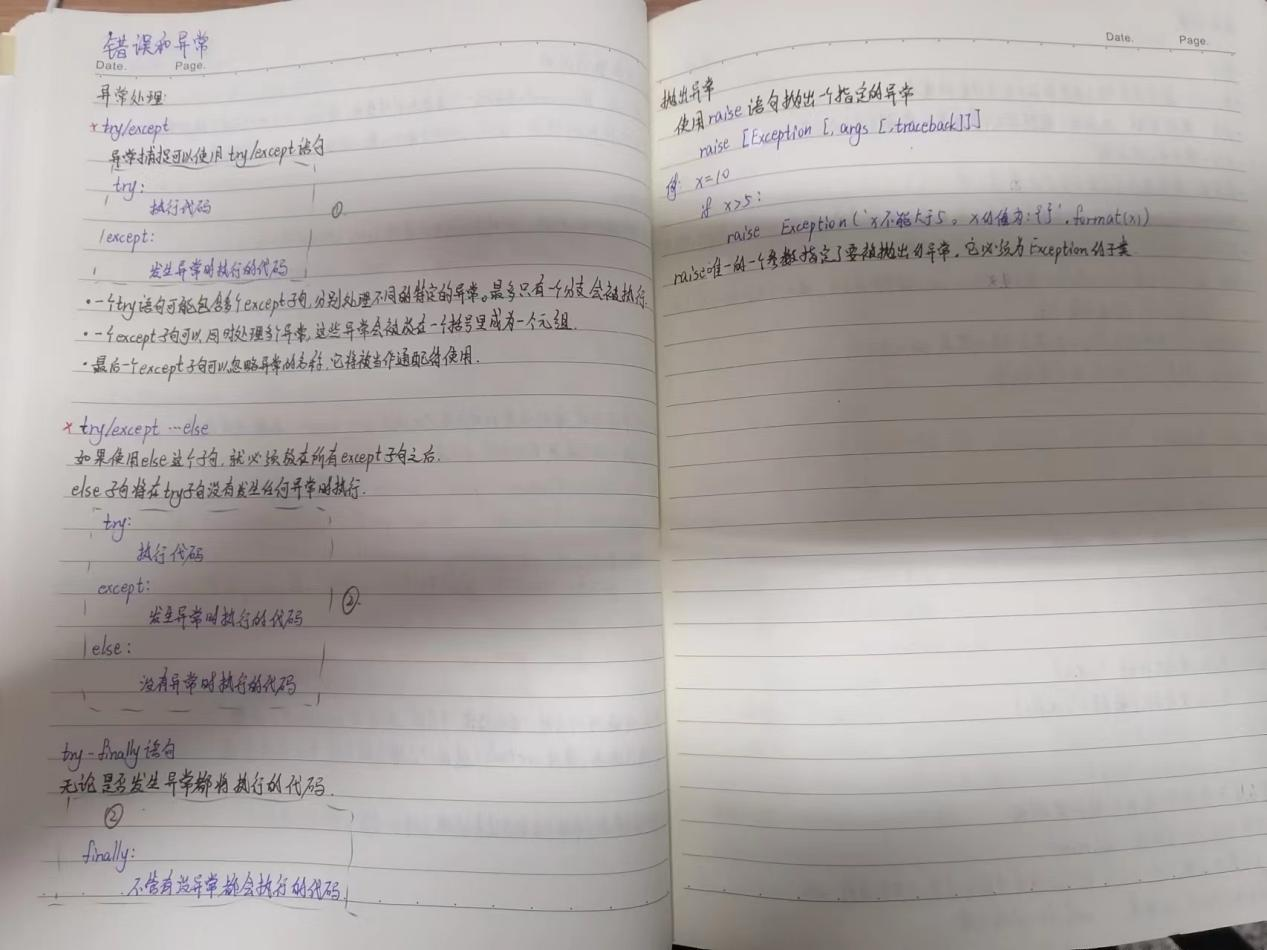 错误和异常
Date. Page.
异常处理:
× try/except
异常捕捉可以使用try/except语句
try:
执行代码
①
except:
发生异常时执行的代码
·一个try语句可能包含多个except子句,分别处理不同的特定的异常。最多只有一个分支会被执行.
·一个except子句可以同时处理多个异常,这些异常会被放在一个括号里成为一个元组.
·最后一个except子句可以忽略异常的名称,它将被当作通配符使用.
× try/except …else
如果使用else这个子句,就必须放在所有except子句之后.
else子句将在try子句没有发生任何异常时执行.
try:
执行代码
except:
②
发生异常时执行的代码
else:
没有异常时执行的代码
try-finally语句
无论是否发生异常都将执行的代码.
②
finally:
不管有没异常都会执行的代码.
Date. Page.
抛出异常
使用raise语句抛出一个指定的异常
raise [Exception [, args [,traceback]]]
例: x=10
if x>5:
raise Exception('x不能大于5。x的值为:{}'.format(x))
raise唯一的一个参数指定了要被抛出的异常。它必须为Exception的子类